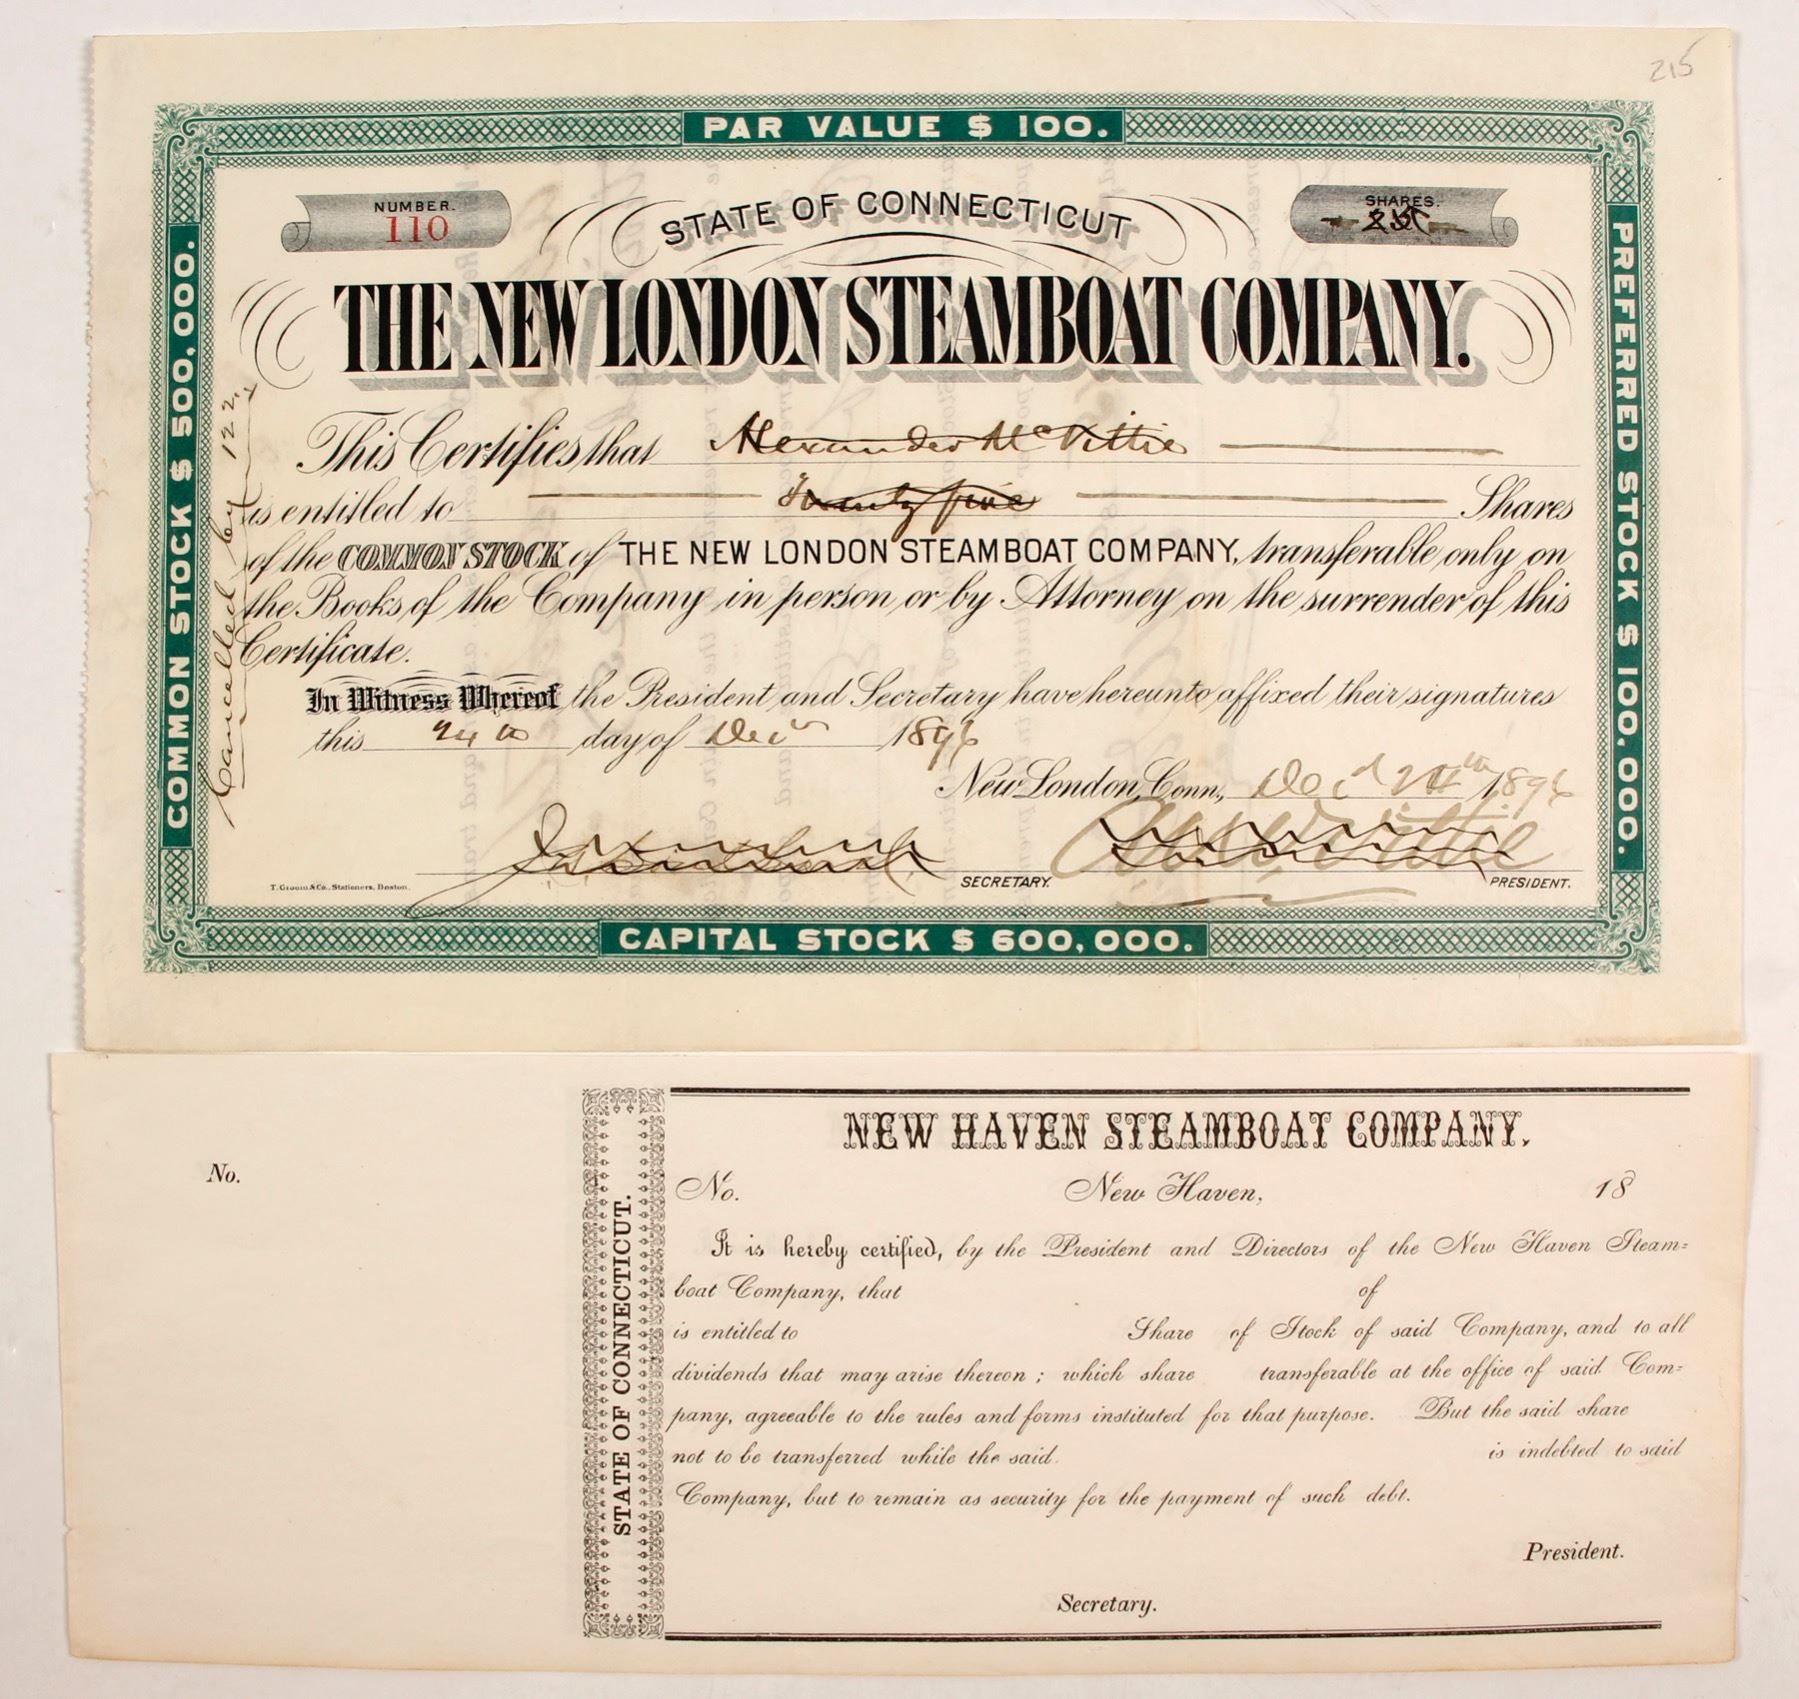 215
PAR VALUE $ 100.
NUMBER.
110
STATE OF CONNECTICUT
SHARES.
THE NEW LONDON STEAMBOAT COMPANY.
COMMON STOCK $ 500,000.
PREFERRED STOCK $ 100,000.
Cancelled by 122
This Certifies that Alexander McVittie
is entitled to Twenty five Shares
of the COMMON STOCK of THE NEW LONDON STEAMBOAT COMPANY, transferable only on
the Books of the Company in person or by Attorney on the surrender of this
Certificate.
In Witness Whereof the President and Secretary have hereunto affixed their signatures
this 24th day of Decr 1896
New London, Conn., Decr 24th 1896
T. Groom & Co., Stationers, Boston.
SECRETARY.
PRESIDENT.
CAPITAL STOCK $ 600,000.
No.
STATE OF CONNECTICUT.
NEW HAVEN STEAMBOAT COMPANY.
No. New Haven, 18
It is hereby certified, by the President and Directors of the New Haven Steam=
boat Company, that of
is entitled to Share of Stock of said Company, and to all
dividends that may arise thereon; which share transferable at the office of said Com=
pany, agreeable to the rules and forms instituted for that purpose. But the said share
not to be transferred while the said is indebted to said
Company, but to remain as security for the payment of such debt.
President.
Secretary.